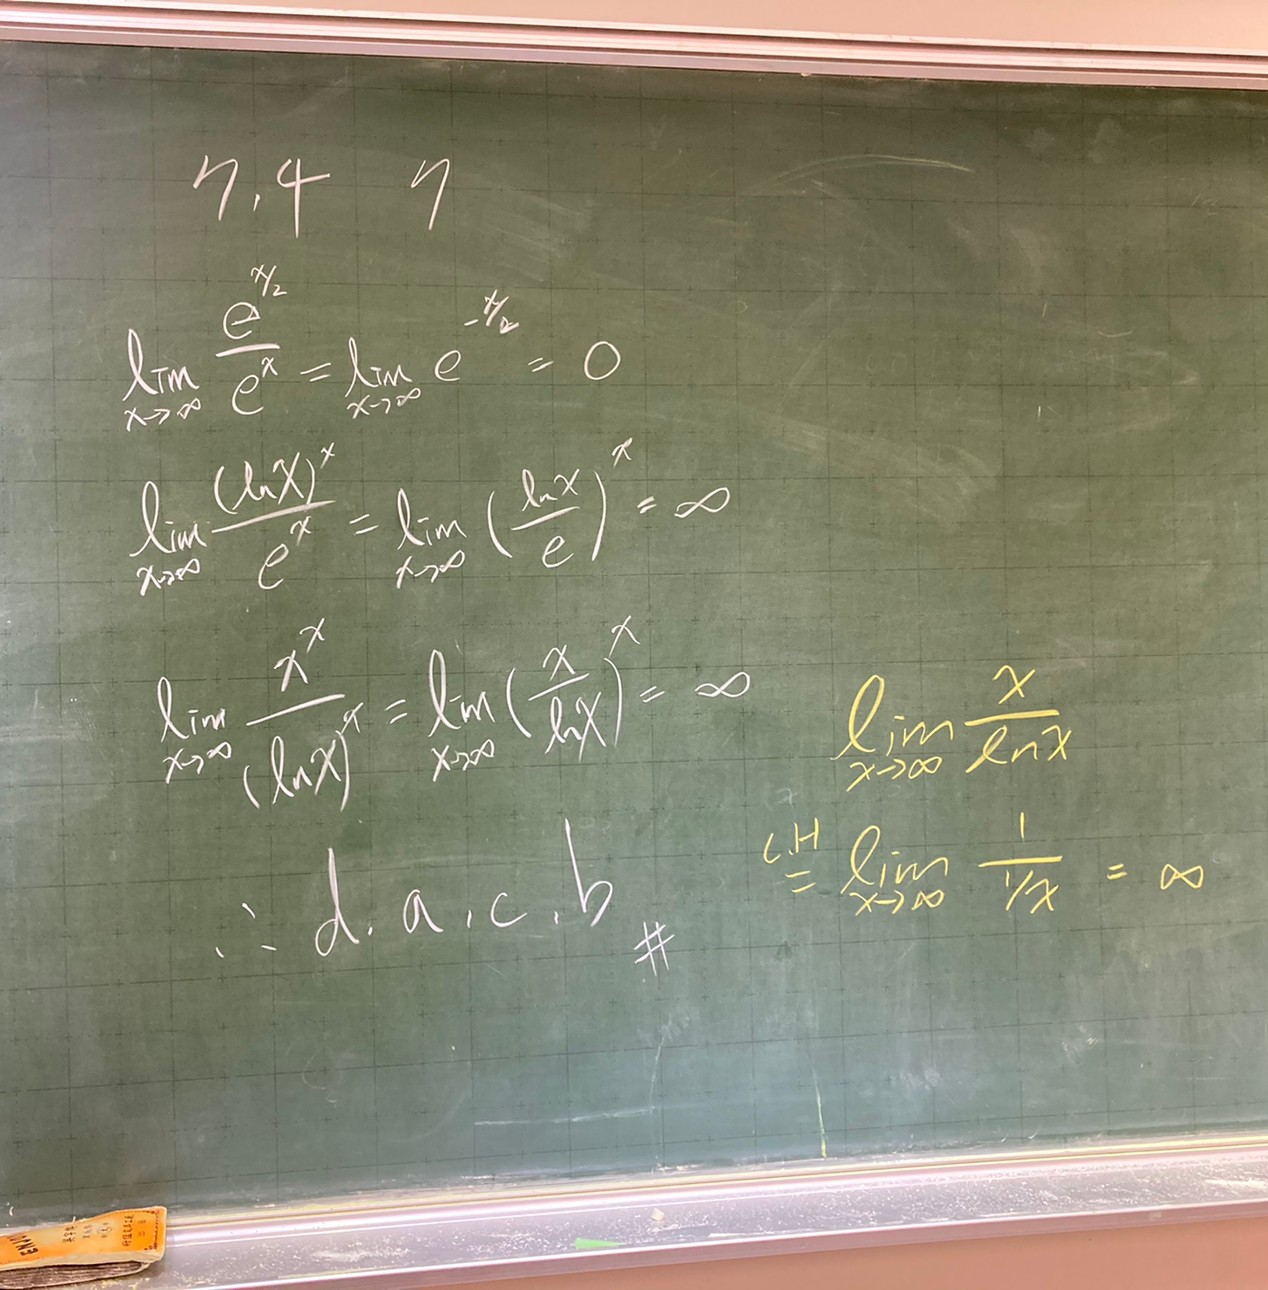 7.4 7
lim x→∞ e^(x/2) / e^x = lim x→∞ e^(-x/2) = 0
lim x→∞ (lnx)^x / e^x = lim x→∞ (lnx / e)^x = ∞
lim x→∞ x^x / (lnx)^x = lim x→∞ (x / lnx)^x = ∞
∴ d. a. c. b #
lim x→∞ x / lnx
L.H = lim x→∞ 1 / (1/x) = ∞